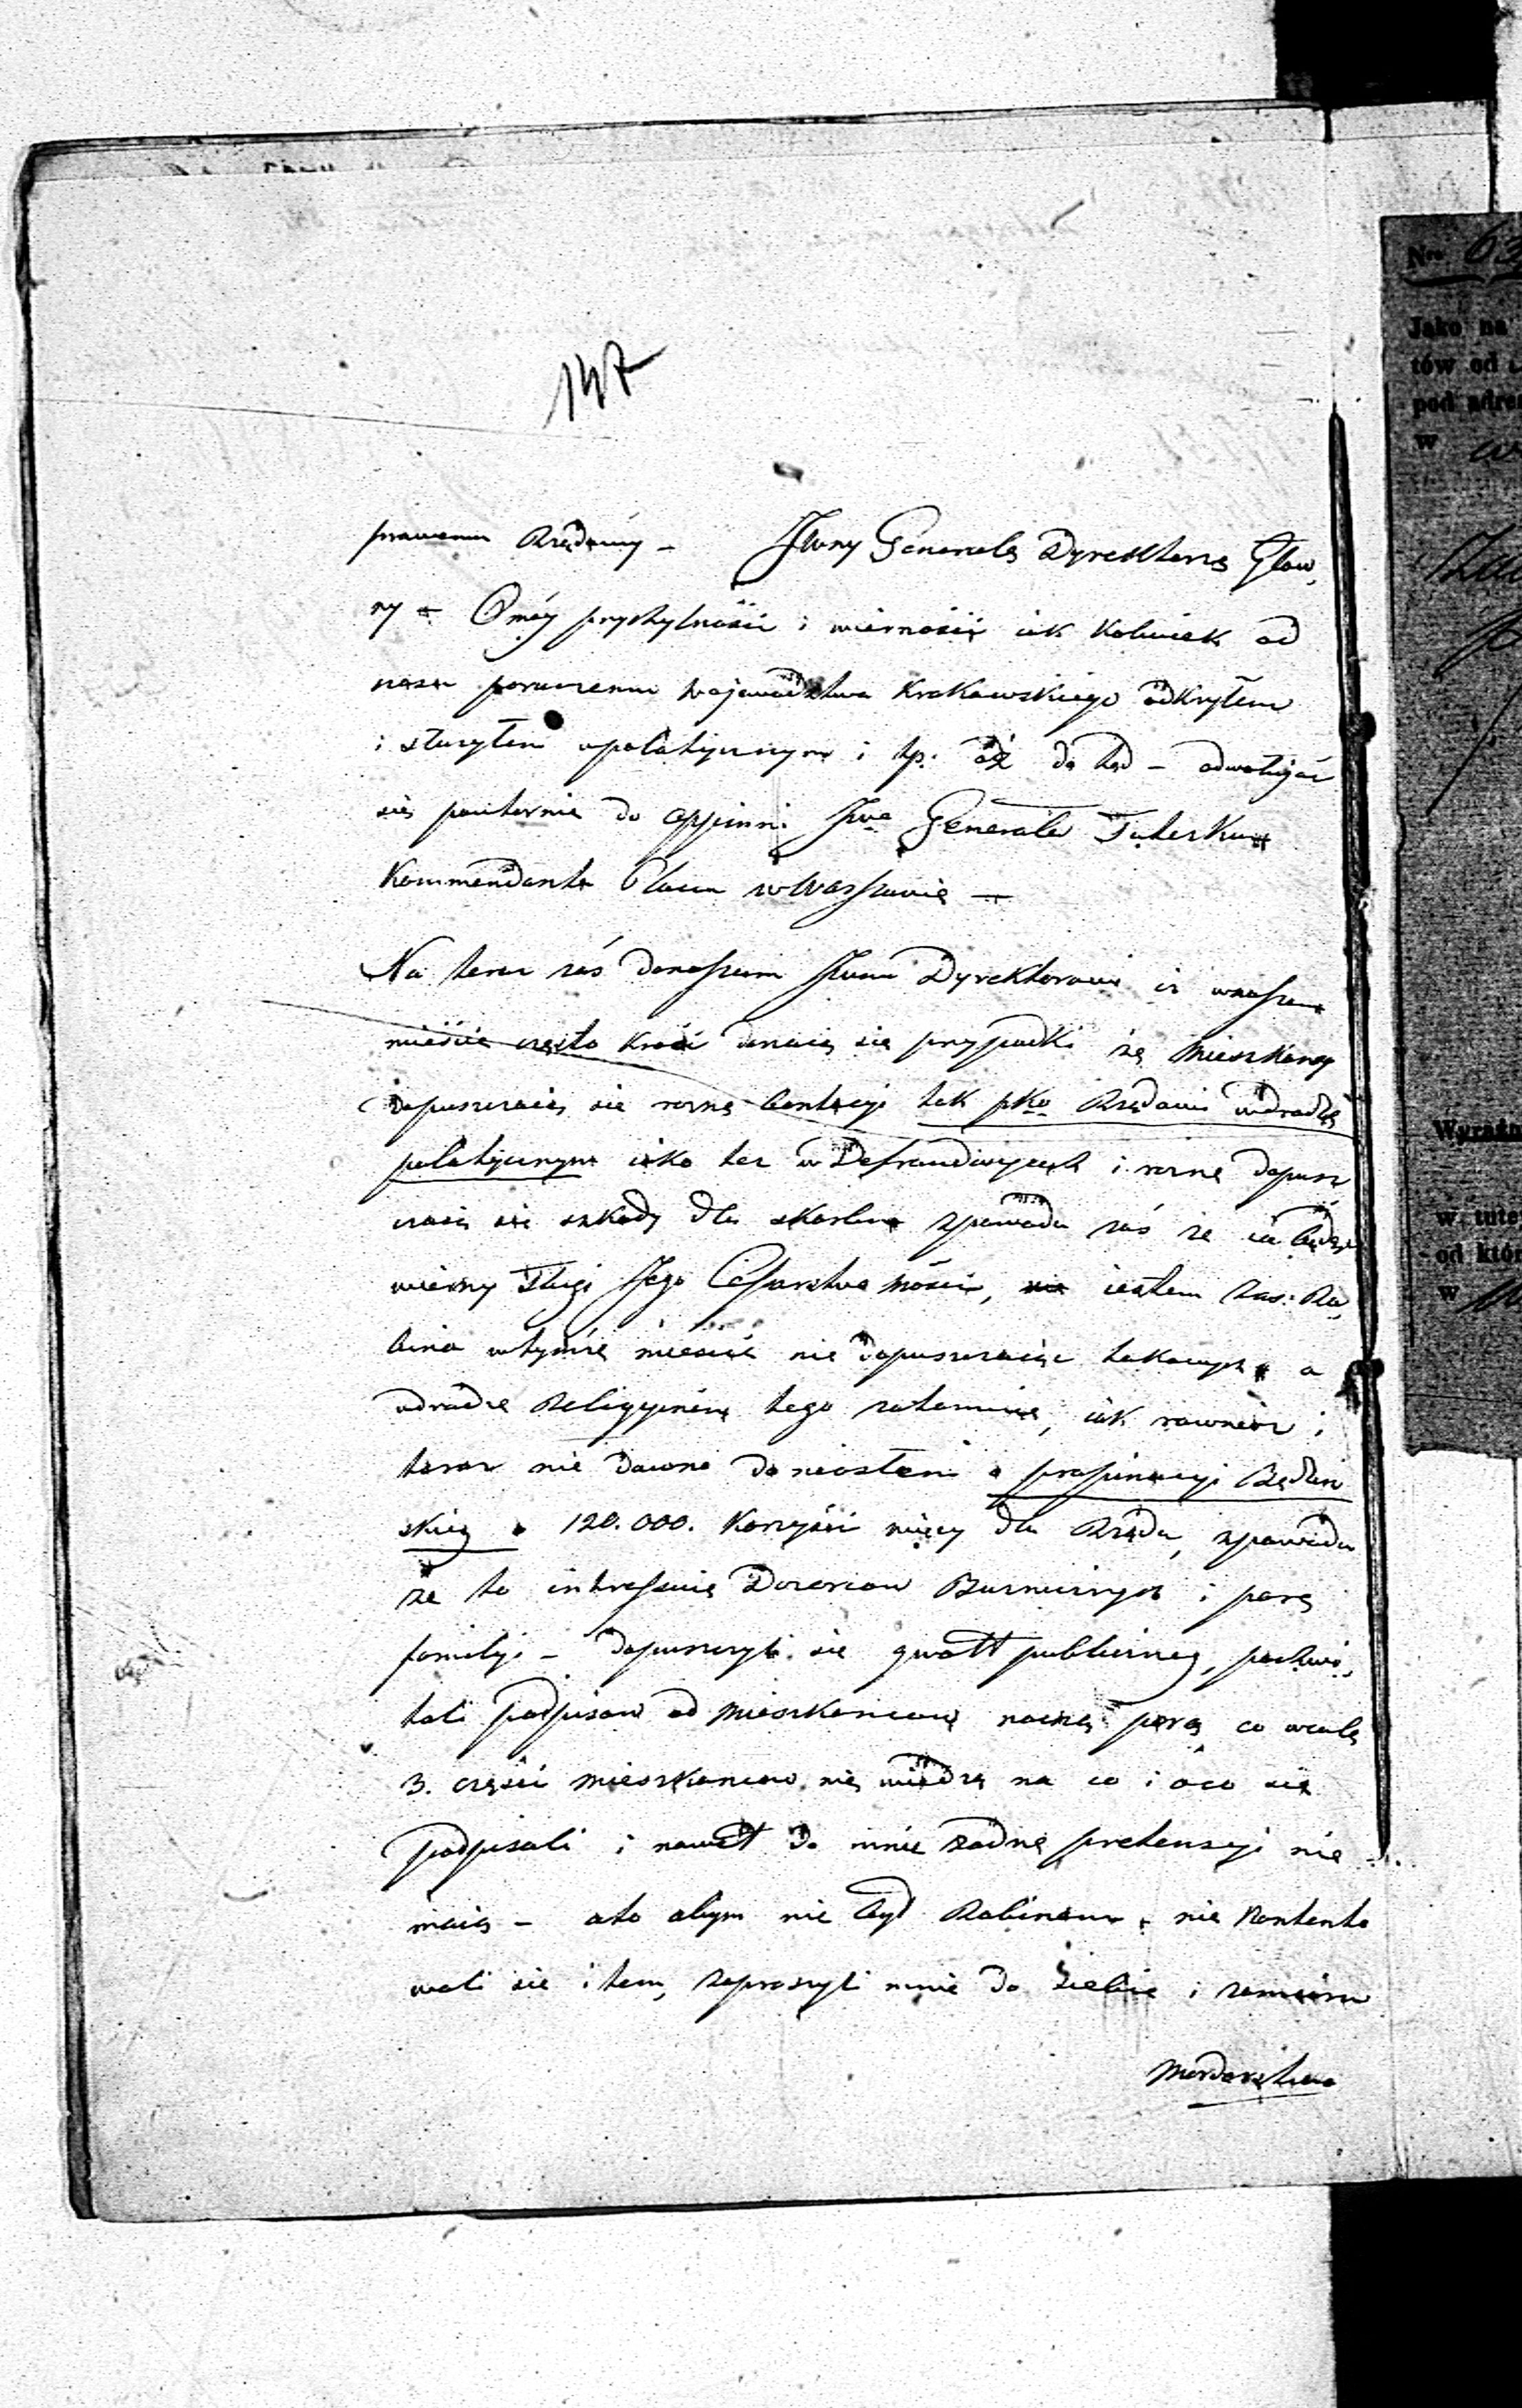 147
prawemu Rządowy – JWny Generale Dyrektorze Głow,
ny – O méy przychylności i wierności iak kolwiek od
czasu poruczenia Województwa Krakowskiego odkryłem
i służyłem w politycznym i tp. aż do tąd – odwołując
się powtornie do oppinni JWo Generała
Kommendanta Placu w Warszawie –
Na teraz zaś donoszem JWmu Dyrektorowi iż w naszem
mieście często kroć zdarzaią się przypadki że mieszkancy
dopuszczaią się rozne tak pko Rządowi w drodze
politycznym iako tez w Defraudacyjach i rozne dopusz
czaią się szkody dla skarbu z powodu zaś że ia będąc
wierny Sługi Jego Cesarstwa Mości, iestem zas: Ra
bina w tymże miescie nie dopuszczaiąc takowych a
w drodze Religyine tego zatamuie, iak rownież i
teraz nie dawno doniosłem o propinacyi Będzin
skiey o 120.000. korzyści więcy dla Rządu, z powodu
że to intressuie Dozorcow Buzniczych i parę
familyi – dopuszczyli się gwałt publiczney, pochwy,
tali podpisow od mieszkancow nocną porą co wcale
3. części mieszkancow nie wiedzą na co i o co się
podpisali i nawet do mnie żadne pretensyi nie
maią – a to abym nie był Rabinem, nie kontento
wali się i tem, zaprosyli mnie do siebie i
morderstwa
Nro 63
Jako na
tów od
pod adre
w
w tute
od któr
w